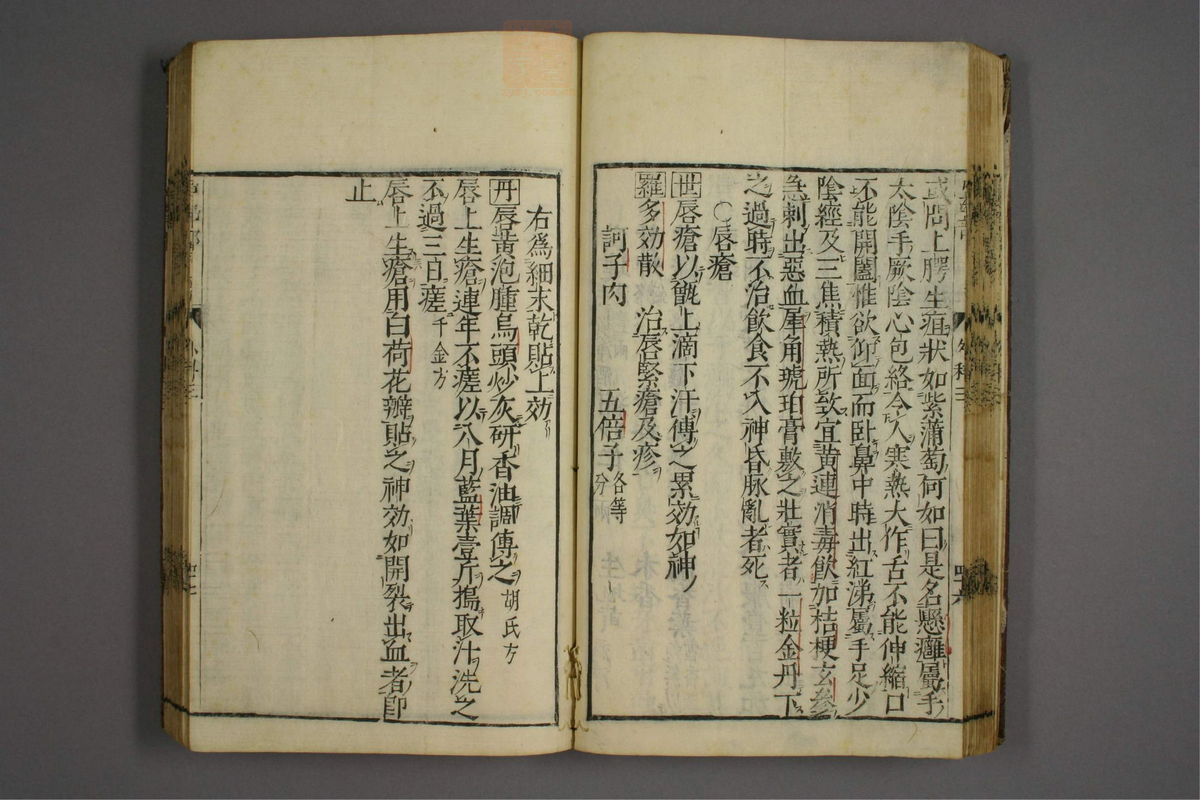 或問上腭生疽狀如紫蒲萄何如曰是名懸癰屬手
太陰手厥陰心包絡令人寒熱大作舌不能伸縮口
不能開闔惟欲仰面而卧鼻中時出紅涕屬手足少
陰經及三焦積熱所致宜黄連消毒飲加桔梗玄參
急刺出惡血犀角琥珀膏敷之壯實者一粒金丹下
之過時不治飲食不入神昏脉亂者死
〇唇瘡
世唇瘡以甑上滴下汗傅之累効如神
羅多効散 治唇緊瘡及疹
訶子肉 五倍子各等分
右爲細末乾貼上効
丹唇黄泡腫烏頭炒灰研香油調傅之胡氏方
唇上生瘡連年不瘥以八月藍葉壹斤搗取汁洗之
不過三日瘥千金方
唇上生瘡用白荷花瓣貼之神効如開裂出血者即
止